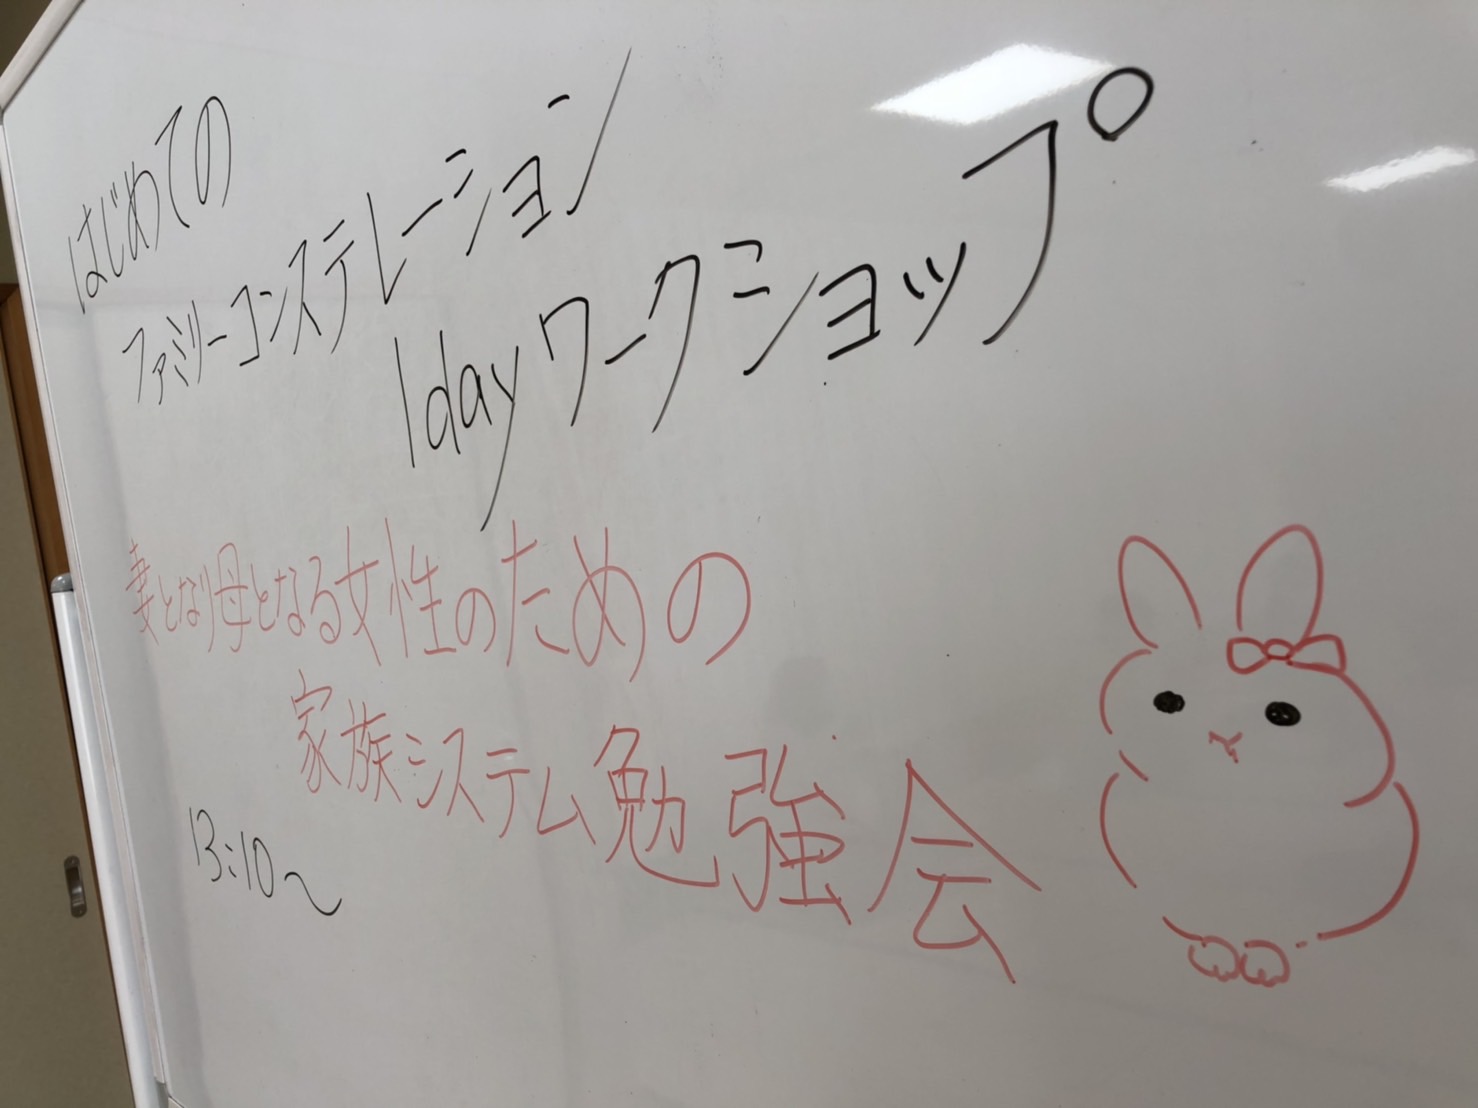 はじめての
ファミリーコンステレーション
1dayワークショップ
妻となり母となる女性のための
家族システム勉強会
13:10〜